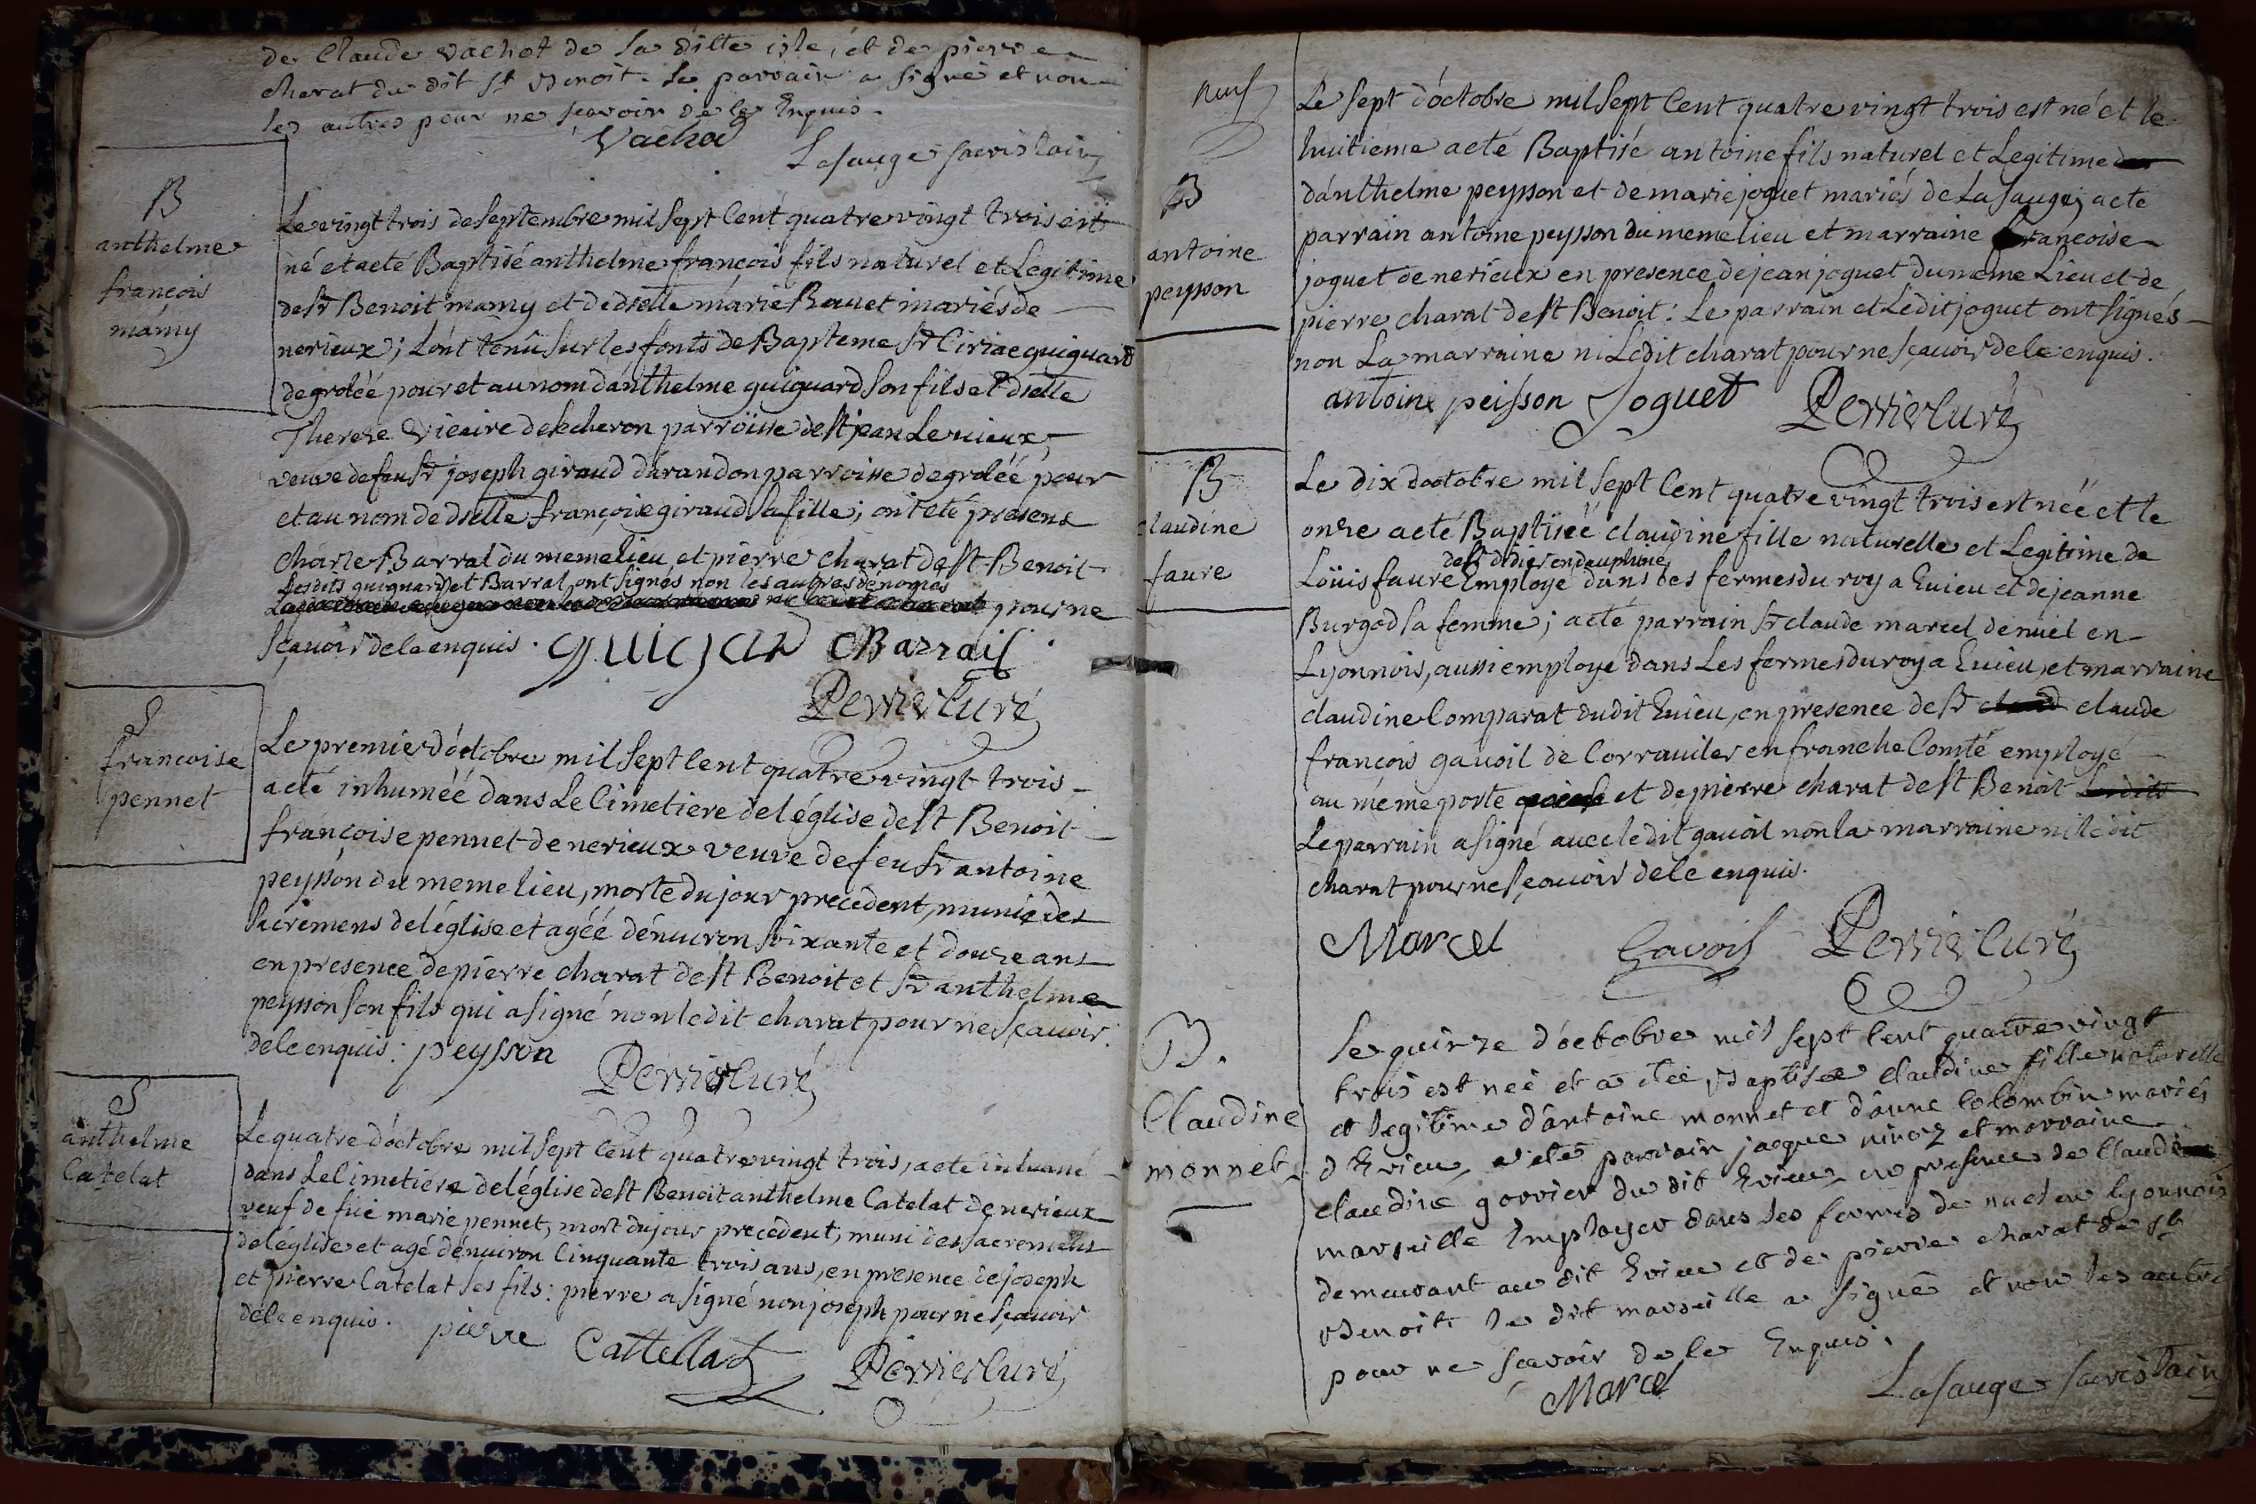 de Claude vachot de la ditte isle, et de pierre
charat du dit st Benoit. le parrain a signé et non
les autres pour ne scavoir de ce Enquis.
Vachot
Lasauge sacristain
B
anthelme
françois
mámy
Le vingt trois de septembre mil sept Cent quatre vingt trois est
né et a eté Baptisé anthelme françois fils naturel et Legitime
de sr Benoit mamy et de dselle márie mariés de
nerieux; L'ónt tenû sur les fonts de Bapteme sr Ciriac quiguard
de groleé pour et au nom dánthelme quiguard son fils et dselle
Therese de parroisse de st jean Le vieux,
veuve de feu sr joseph giraud dárandon parroisse de groleé pour
et au nom de dselle françoise giraud sa fille; ont eté presens
Charle Barral du meme lieu et pierre charat de st Benoit
Lesdits quiguard et Barral, ont signés non les autres dénomés
pour ne
sçavoir de ce enquis. guigard Barrail
Perrier Curé
S
francoise
pennet
Le premier d'óctobre mil sept Cent quatre vingt trois
a eté inhuméé dans Le Cimetiere de l'église de st Benoit
françoise pennet de nerieux veuve de feu sr antoine
peysson du meme lieu, morte du jour precedent, munie des
sacremens de l'église et agéé d'énviron soixante et douze ans
en presence de pierre charat de st Benoit et sr anthelme
peysson son fils qui a signé non le dit charat pour ne sçavoir
de ce enquis: peysson
Perrier Curé
S
anthelme
Catelat
Le quatre d'óctobre mil sept Cent quatre vingt trois, a eté inhumé
dans Le Cimetiere de l'église de st Benoit anthelme Catelat de nerieux
veuf de fuë marie pennet, mort du jour precedent, muni des sacremens
de l'église et agé d'énviron Cinquante trois ans, en presence de joseph
et pierre Catelat ses fils: pierre a signé non joseph pour ne sçavoir
de ce enquis. pierre Cattellat Perrier Curé
neuf
B
antoine
peysson
Le sept d'óctobre mil sept Cent quatre vingt trois est né et le
huitieme a eté Baptisé antoine fils naturel et Legitime
dánthelme peysson et de marie joguet mariés de La sauge; a eté
parrain antoine peysson du meme lieu et marraine francoise
joguet de nerieux en presence de jean joguet du meme Lieu et de
pierre charat de st Benoit: Le parrain et Ledit joguet ont signés
non La marraine ni Ledit charat pour ne sçavoir de ce enquis.
antoine peisson Joguet Perrier Curé
B
claudine
faure
Le dix d'octobre mil sept Cent quatre vingt trois est néé et le
onze a eté Baptiséé claudine fille naturelle et Legitime de
de st didier en dauphine
Loüis faure Employé dans les fermes du roy a Euieu et de jeanne
Burgod sa femme; a eté parrain sr claude marcel de nuel en
Lyonnois, aussi employe dans Les fermes du roy a Euieu, et marraine
claudine Comparat dudit Euieu, en presence de sr claude
françois gavoil de Corraviler en franche Comté employé
au méme poste et de pierre charat de st Benoit
Le parrain a signé avec le dit gavoil non la marraine ni le dit
charat pour ne sçavoir de ce enquis.
Marcel Gavoil Perrier Curé
B.
Claudine
monnet
Le quinze d'óctobre mil sept Cent quatre vingt
trois est neé et a eteé Baptisee claudine fille naturelle
et legitime d'ántoine monnet et d'ánne Colombin mariés
d'Evieu, a eté parrain jacque et marraine
claudine gorrier du dit Evieu, en presence de Claude
marseille Employer dans les fermes de nuel en lyonnois
demeurant au dit Evieu et de pierre charat de st
Benoit. le dit marseille a signé et non les autre
pour ne scavoir de ce Enquis.
Marcel Lasauge sacristain